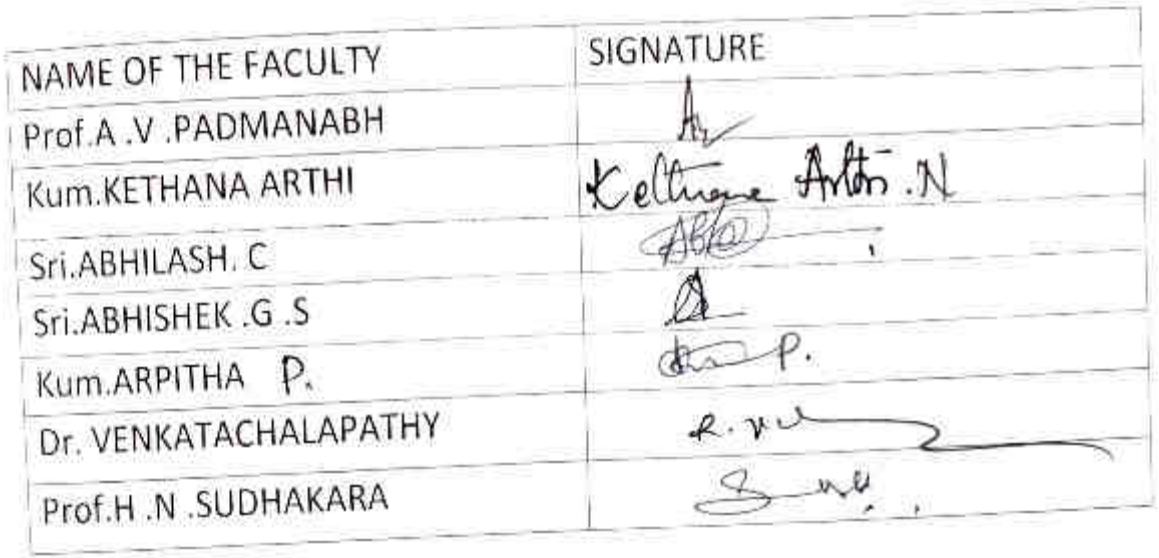 NAME OF THE FACULTY SIGNATURE
Prof.A .V .PADMANABH
Kum.KETHANA ARTHI Kethana Arthi .N
Sri.ABHILASH. C
Sri.ABHISHEK .G .S
Kum.ARPITHA P. P.
Dr. VENKATACHALAPATHY R.
Prof.H .N .SUDHAKARA